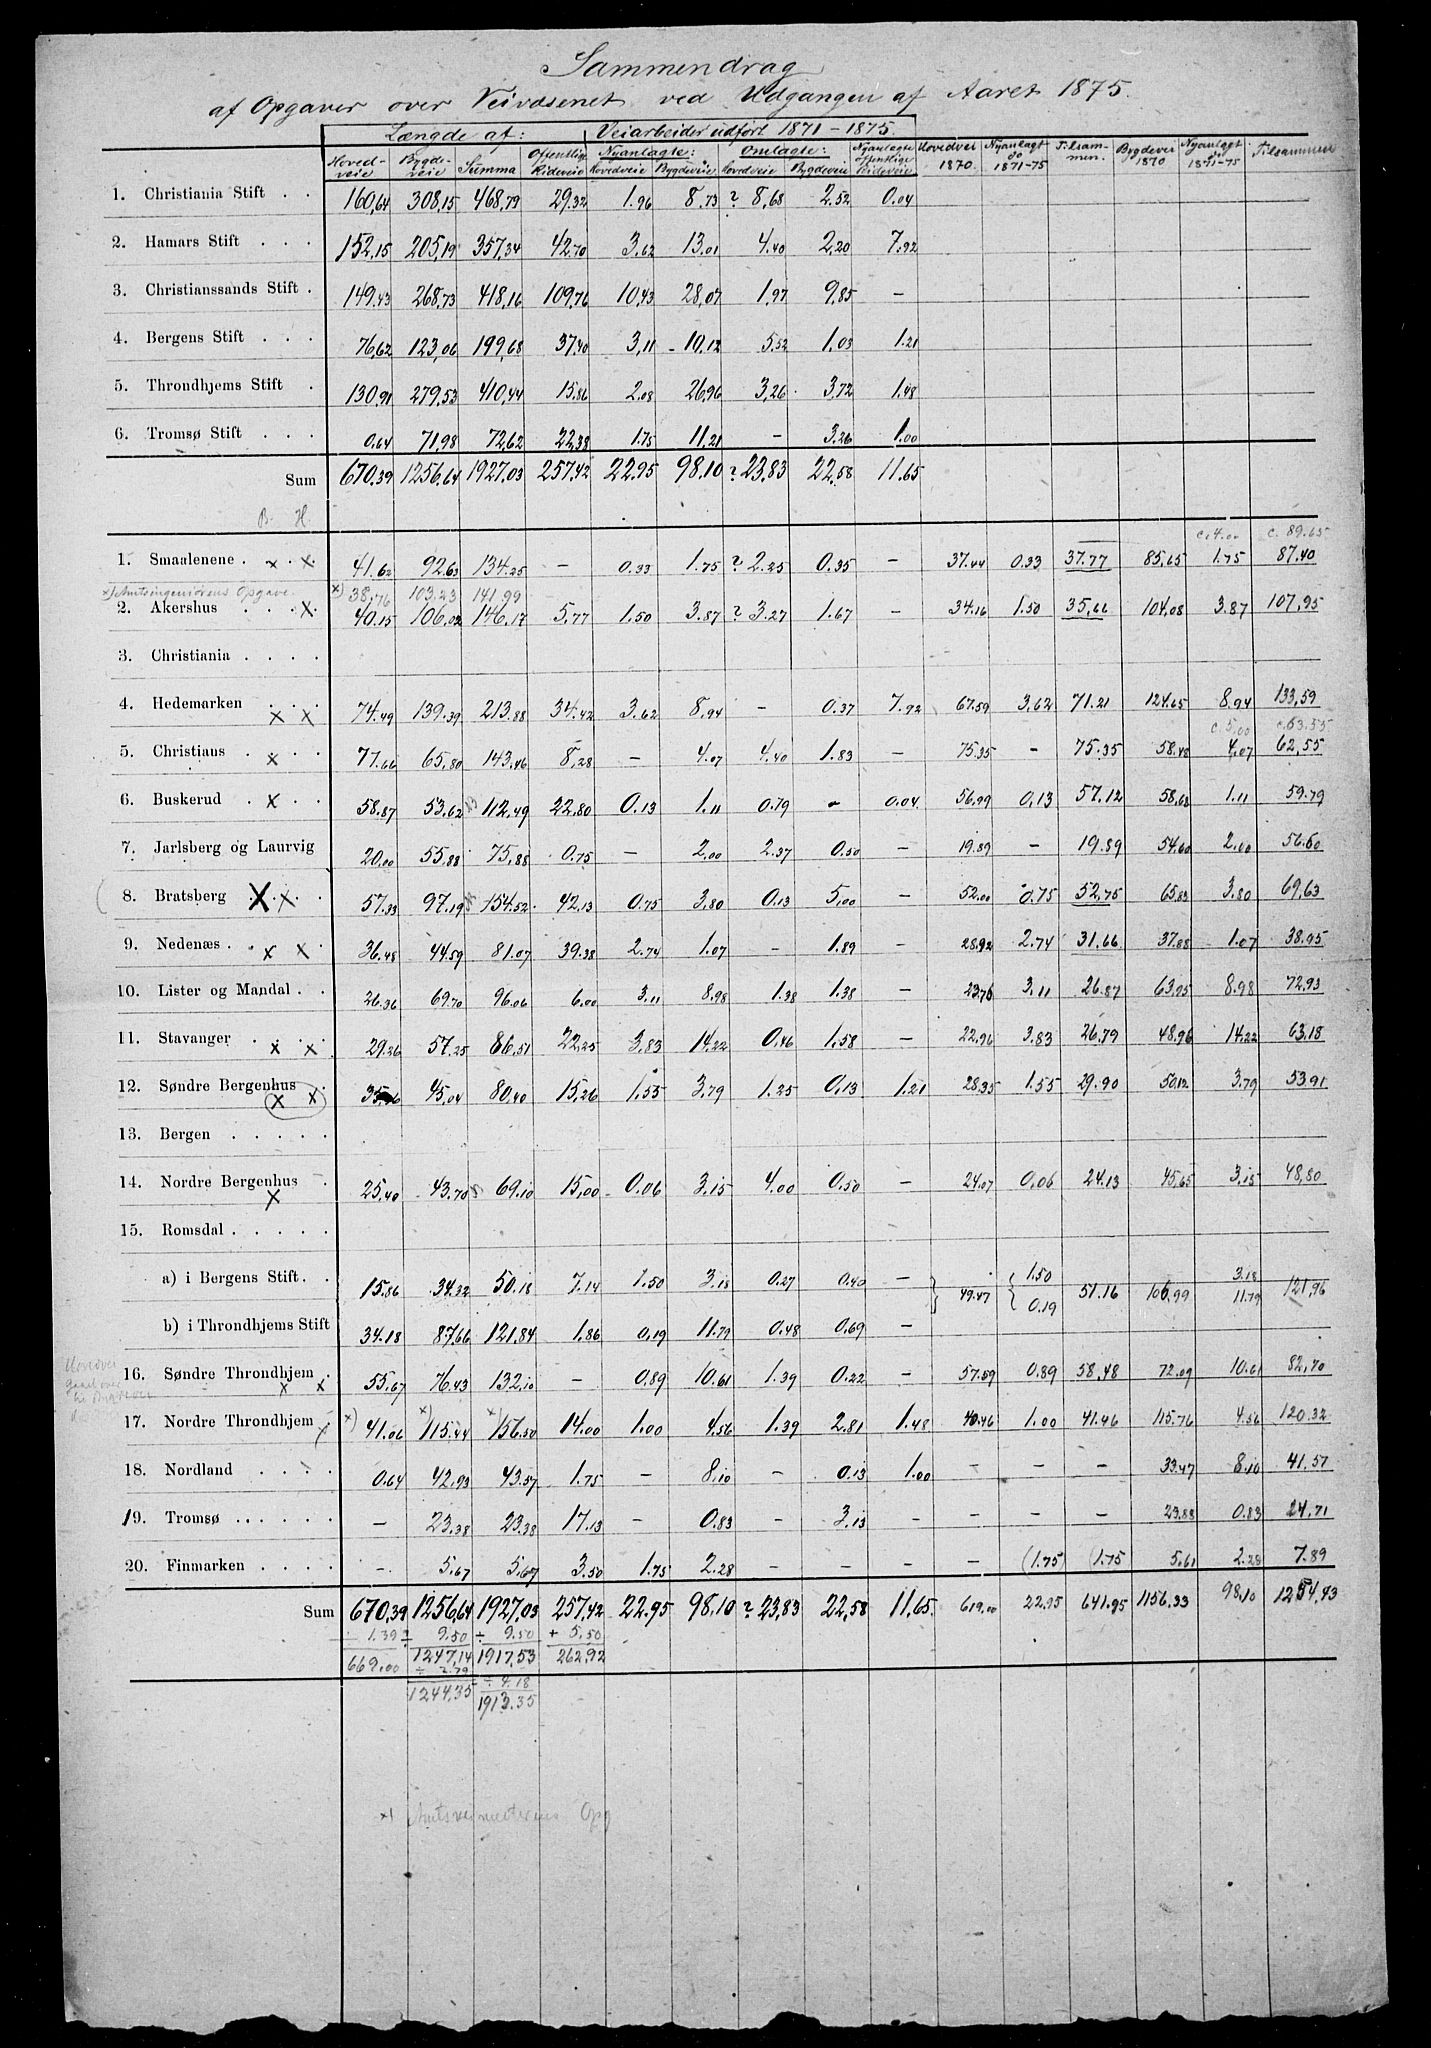 Sammendrag
af Opgaver over Veivæsenet ved Udgangen af Aaret 1875.
Længde af: Veiarbeider udført 1871 - 1875.
Hovedveie Bygdeveie Summa Offentlige Rideveie Nyanlagte: Hovedveie Bygdeveie Omlagte: Hovedveie Bygdeveie Nyanlagte offentlige Rideveie Hovedvei 1870. Nyanlagt do 1871-75 Tilsammen. Bygdevei 1870 Nyanlagt do 1871-75 Tilsammen
1. Christiania Stift . . 160,64 308,15 468,79 29,32 1.96 8,73 ? 8,68 2.52 0.04
2. Hamars Stift . . . 152,15 205,19 357,34 42.70 3,62 13.01 4.40 2,20 7.92
3. Christianssands Stift . 149.43 268,73 418,16 109,76 10,43 28,07 1,97 9,85 -
4. Bergens Stift . . . 76,62 123,06 199,68 37.40 3,11 10,12 5.52 1,03 1.21
5. Throndhjems Stift . 130,91 279,53 410,44 15,86 2.08 26,96 3,26 3,72 1,48
6. Tromsø Stift . . . 0.64 71,98 72,62 22,38 1.75 11,21 - 3.26 1.00
Sum 670.39 1256,64 1927,03 257,42 22.95 98.10 ? 23,83 22,58 11.65
B. H.
c. 4.00 c. 89.65
1. Smaalenene . x . x 41.62 92.63 134.25 - 0.33 1.75 ? 2.25 0.35 - 37.44 0.33 37.77 85,65 1.75 87.40
x) Amtsingeniørens Opgave. x) 38,76 103,23 141.99
2. Akershus . . . x 40.15 106,02 146,17 5,77 1,50 3.87 ? 3.27 1.67 - 34.16 1.50 35,66 104,08 3.87 107,95
3. Christiania . . . .
4. Hedemarken . . . x x 74.49 139.39 213.88 34.42 3.62 8,94 - 0.37 7.92 67.59 3,62 71.21 124.65 8.94 133,59
c. 5,00 c. 63.55
5. Christians . . . x 77.66 65,80 143,46 8,28 - 4.07 4.40 1.83 - 75.35 - 75.35 58.48 4.07 62,55
6. Buskerud . x . . 58.87 53,62 112,49 22.80 0.13 1.11 0.79 - 0.04 56.99 0,13 57.12 58,68 1.11 59.79
7. Jarlsberg og Laurvig 20.00 55,88 75,88 0.75 - 2,00 2.37 0.50 - 19.89 - 19.89 54.60 2.00 56.60
( 8. Bratsberg X x . 57.33 97.19 154.52 42.13 0.75 3,80 0.13 5,00 - 52.00 0.75 52,75 65.83 3.80 69,63
9. Nedenæs . . x x 36.48 44.59 81.07 39.38 2.74 1.07 - 1.89 - 28.92 2.74 31.66 37.88 1.07 38.95
10. Lister og Mandal . . 26.36 69.70 96.06 6.00 3.11 8.98 1.38 1.38 - 23.76 3.11 26.87 63.95 8.98 72,93
11. Stavanger . . x x 29.26 57.25 86,51 22,25 3,83 14.22 0.46 1.58 - 22,96 3.83 26,79 48.96 14.22 63.18
12. Søndre Bergenhus . x x 45,04 80,40 15,26 1,55 3,79 1.25 0,13 1.21 28.35 1.55 29.90 50.12 3.79 53.91
13. Bergen . . . . .
14. Nordre Bergenhus . x 25,40 43.70 69.10 15,00 0.06 3,15 4.00 0.50 - 24.07 0.06 24.13 45,65 3,15 48,80
15. Romsdal . . . . .
a) i Bergens Stift . . 15.86 34.32 50.18 7.14 1.50 3.18 0.27 0.40 - 49.47 1.50 0.19 51.16 106.99 3.18 11.79 121,96
b) i Throndhjems Stift 34.18 87,66 121.84 1.86 0,19 11.79 0.48 0.69 -
16. Søndre Throndhjem . x x 55,67 76.43 132,10 - 0,89 10.61 1.39 0.22 - 57.59 0.89 58.48 72.09 10.61 82,70
17. Nordre Throndhjem x x) 41.06 x) 115.44 x) 156.50 14.00 1.00 4.56 1.39 2.81 1.48 40.46 1.00 41.46 115.76 4.56 120.32
18. Nordland . . . . 0.64 42.93 43.57 1.75 - 8,10 - 0.13 1.00 - - - 33.47 8.10 41.57
19. Tromsø . . . . . . - 23.38 23.38 17.13 - 0.83 - 3,13 - - - - 23.88 0.83 24.71
20. Finmarken . . . . - 5.67 5.67 3.50 1.75 2.28 - - - - (1.75) (1.75 5.61 2.28 7.89
Sum 670,39 1256,64 1927,03 257,42 22.95 98,10 ? 23,83 22,58 11,65. 619.00 22.95 641.95 1156.33 98.10 1254,43
÷ 1.39 ÷ 9.50 ÷ 9.50 + 5,50
669.00 1247,14 1917,53 262,92
÷ 2.79 ÷ 4.18
1244.35 1913.35
x) Amtsveimesterens Opg